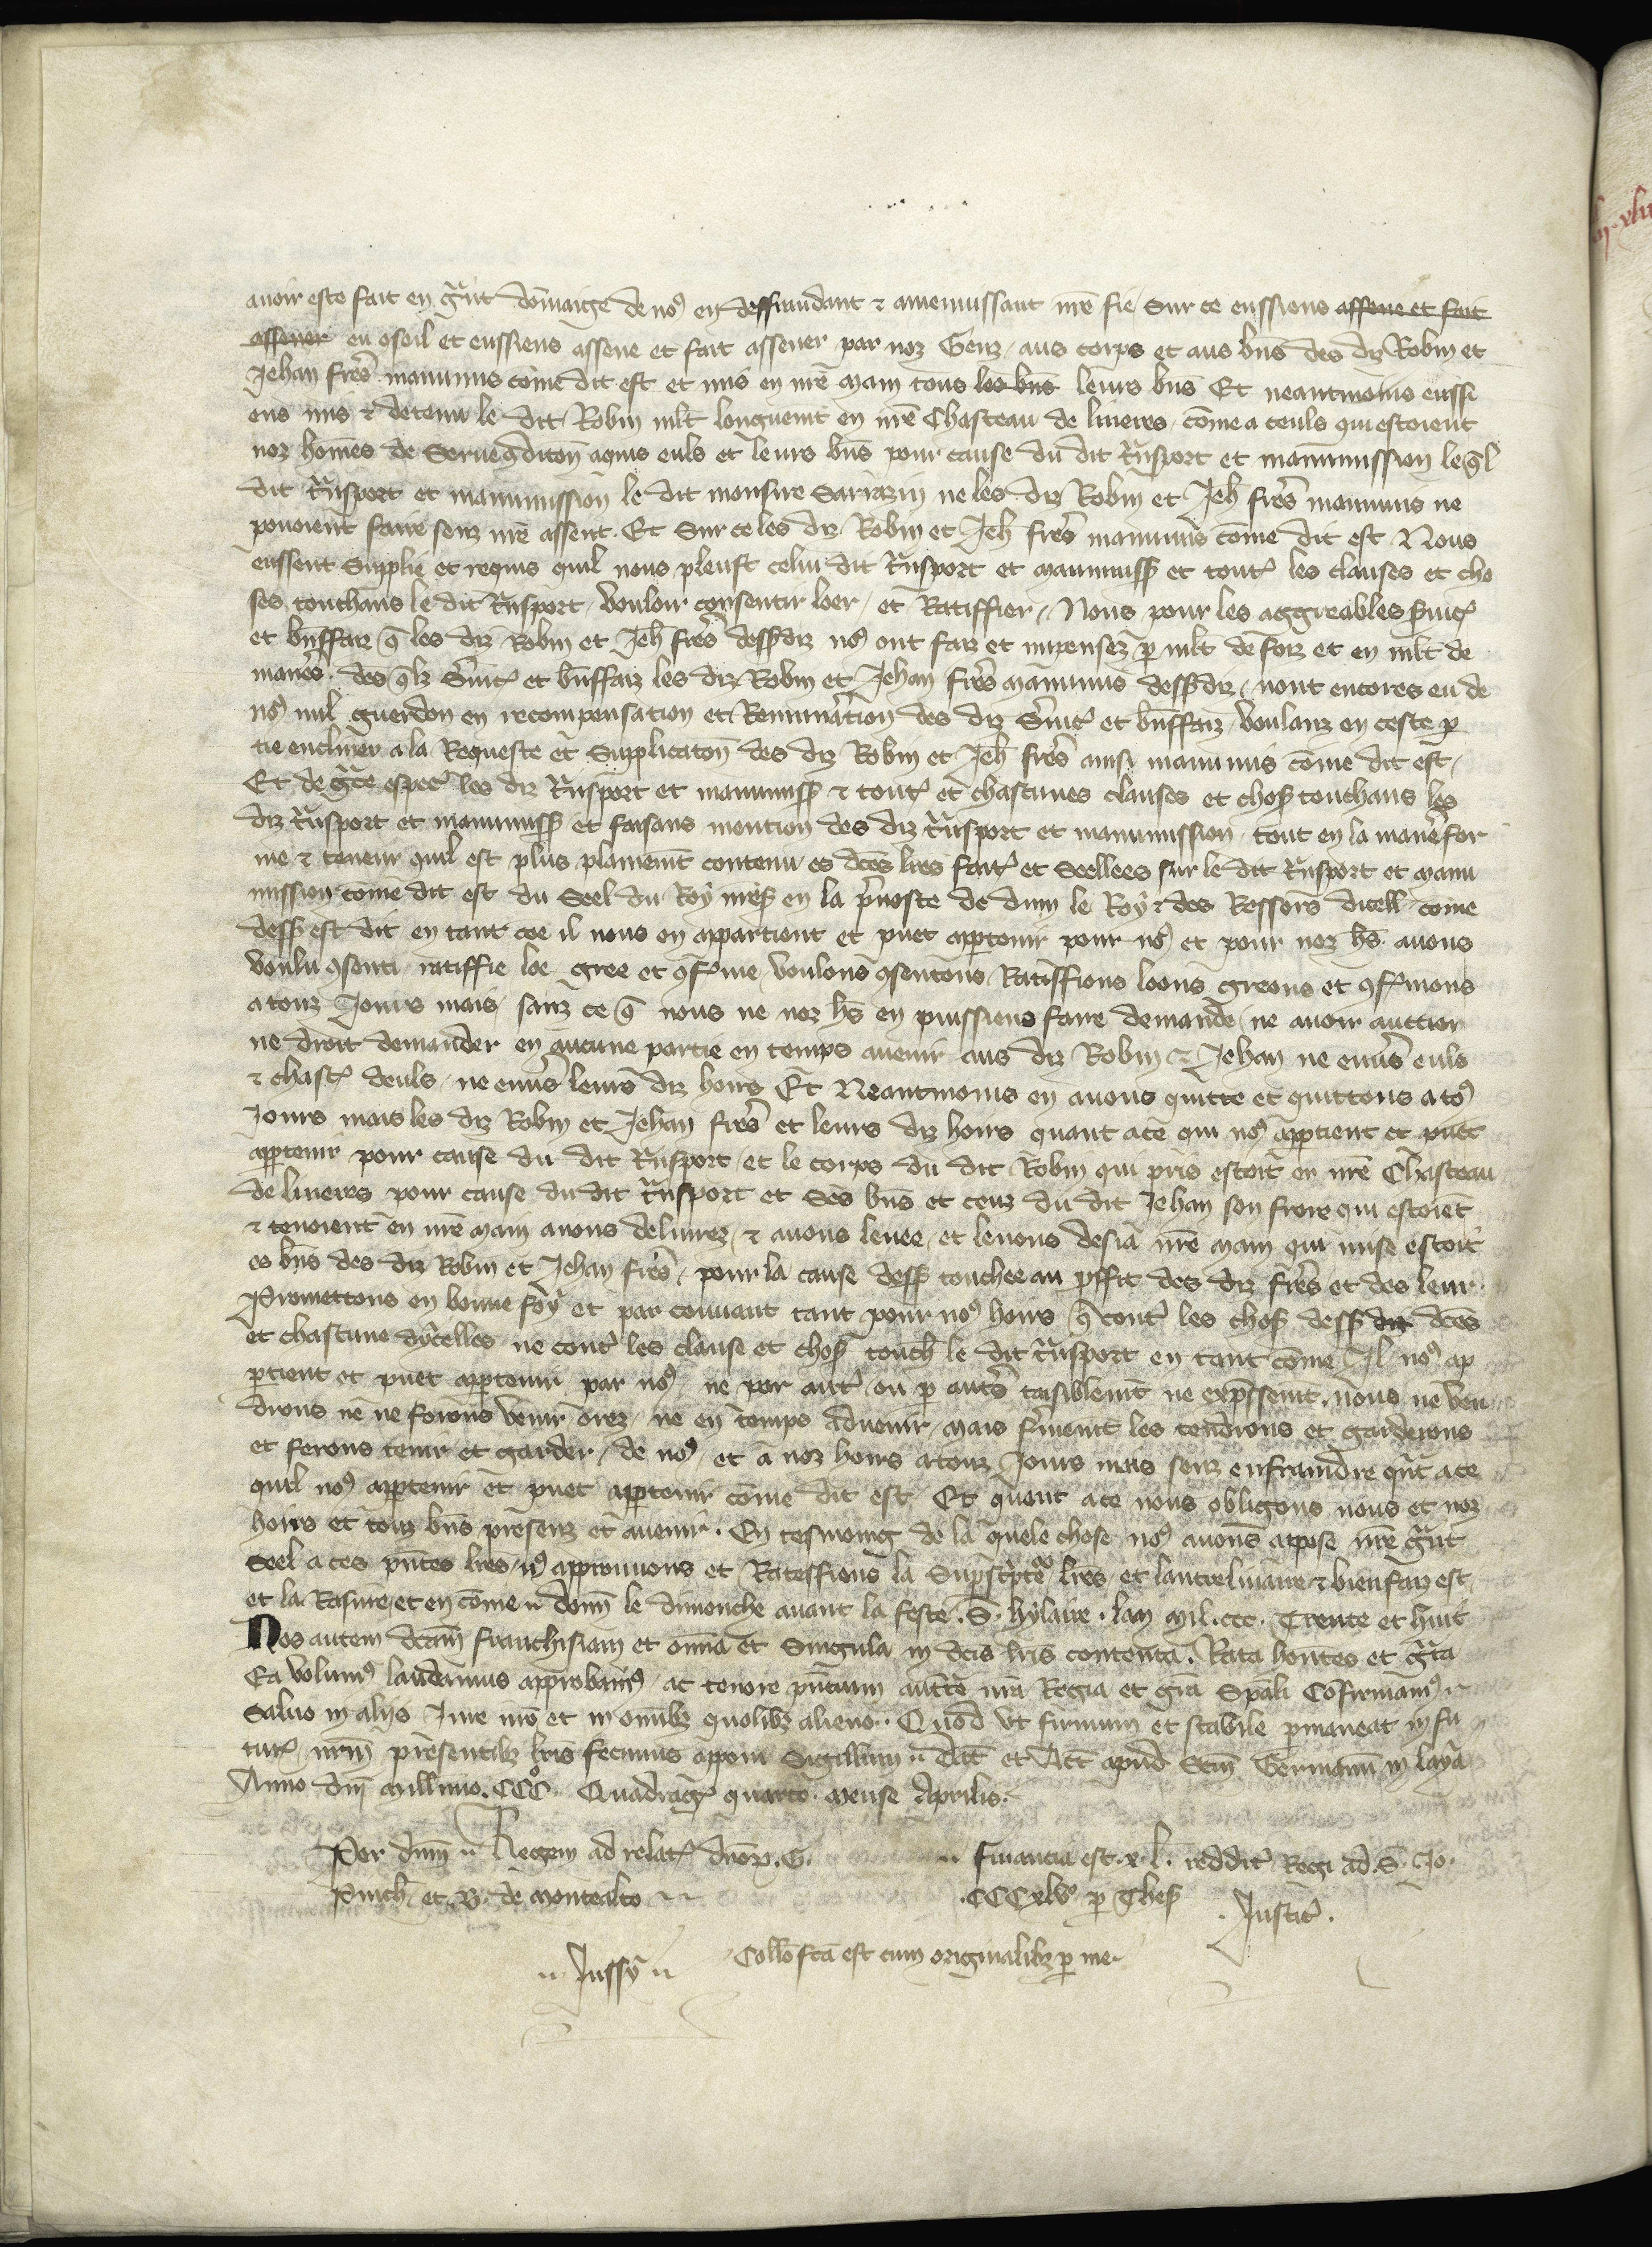 avoir este fait en gn̄t dōmaige de nꝰ en deffraudant & amenuissant nr̄e fie Sur ce eussiens assene et fait
assener en ꝯseil et eussiens assene et fait assener par noz Genz aus corps et aus bn̄s des diz Robin et
Jehan frer̄s manumis cōme dit est et mis en nr̄e main tous les bn̄s leurs bn̄s Et neantmoins eussi
ens mis & detenu le dit Robin ml̄t longuemt̄ en nr̄e Chasteau de linieres cōme a ceuls qui estoient
noz hōmes de Serue ꝯditōn aquis euls et leurs bn̄s pour cause du dit tn̄sport et manumission leq̄l
dit tn̄sport et manumission le dit monsire Sarrazin ne les diz Robin et Jeh̄ frer̄s manumis ne
povoient faire senz nr̄e assent. Et Sur ce les diz Robin et Jeh̄ frer̄s manumis cōme dit est Nous
eussent Supplie et requis quil nous pleust celui dit tn̄sport et manumiss̄ et toutꝭ les clauses et cho
ses touchans le dit tn̄sport vouloir consentir loer et Ratiffier Nous pour les aggreables s̄uicꝭ
et bn̄ffaiz q̄ les diz Robin et Jeh̄ frer̄s dess̄diz nꝰ ont faiz et impensez p̱ ml̄t de foiz et en ml̄t de
maner̄s. des q̄lz s̄uicꝭ et bn̄ffaiz les diz Robin et Jehan frer̄s manumis dess̄diz nont encores eu de
nꝰ nul guerdon en recompensation et Remuner̄ation des diz s̄uicꝭ et bn̄ffaiz voulanz en ceste p̱
tie encliner a la Requeste et Supplicatōn des diz Robin et Jeh̄ frer̄s ainsi manumis cōme dit est
Et de gr̄ce especꝭ les diz tn̄sport et manumiss̄ & toutꝭ et chascunes clauses et chos̄ touchans les
diz tn̄sport et manumiss̄ et faisans mention des diz tn̄sport et manumission tout en la maner̄e for
me & teneur quil est plus plainemt̄ contenu es dc̄es lr̄es faitꝭ et Seellees sur le dit tn̄sport et manu
mission cōme dit est du Seel du Roy nr̄es̄ en la p̄uoste de dun le Roy & des Ressors dicell̄ cōme
dess̄ est dit en tant cōe il nous en appartient et puet app̱tenir pour nꝰ et pour noz hs̄ avons
voulu ꝯsenti ratiffie loe gree et ꝯfꝭme voulons ꝯsentons Ratiffions loons greons et ꝯfꝭmons
a touz Jours mais sanz ce q̄ nous ne noz hs̄ en puissiens faire demande ne avoir auction
ne droit demander en aucune partie en temps avenir aus diz Robin & Jehan ne enus̄ euls
& chascꝭ deuls ne enus̄ leurs diz hoirs Et Neantmoins en avons quitte et quittons a toꝰ
Jours mais les diz Robin et Jehan frer̄s et leurs diz hoirs quant a ce qui nꝰ app̱tient et puet
app̱tenir pour cause du dit tn̄sport et le corps du dit Robin qui pris estoit en nr̄e Chasteau
de linieres pour cause du dit tn̄sport et Ses bn̄s et ceuz du dit Jehan son frere qui estoiēt
& tenoient en nr̄e main avons delivrez & avons levee et levons desia nr̄e main qui mise estoit
es bn̄s des diz Robin et Jehan frer̄s pour la cause dess̄ touchee au ꝓffit des diz frer̄s et des leur.
Promettons en bonne foy et par couvant tant pour nꝰ hoirs q̄ contr̄ les chos̄ dess̄ diz dc̄es
et chascune dycelles ne contr̄ les clause et chos̄ touch̄ le dit tn̄sport en tant cōme Il nꝰ ap
p̱tient et puet app̱tenir par nꝰ ne par autꝭ ou p̱ autrēs taisiblemt̄ ne exp̄ssemt̄ nous ne ven
drons ne ne ferons venir orez ne en temps advenir mais fr̄memt̄ les tendrons et garderons
et ferons tenir et garder de nꝰ et a noz hoirs a touz Jours mais senz enfraindre qn̄t a ce
quil nꝰ app̱tenir et puet app̱tenir cōme dit est Et quent a ce nous obligons nous et noz
hoirs et touz bn̄s presenz et avenir. En tesmoing de la quele chose nꝰ avons appose nr̄e gn̄t
Seel a ces pn̄tes lr̄es approuvons et Rateffions la Supsc̄pte lr̄es et lantreliniaire & bien faiz est
et la Rasure et en cōme doñ le dimenche avant la feste S. hylaire. lan Mil. ccc. Trente et huit
Nos autem dc̄am franchisiam et om̄ia et Singula in dc̄is lr̄is contenta. Rata hn̄tes et gr̄ta
Ea volumꝰ laudamus approbamꝰ ac tenore pn̄tium auctē nr̄a Regia et gr̄a Sp̄ali Cōfirmamꝰ
Salvo in aliis Jure nr̄o et in om̄ibꝫ quolibꝫ alieno. Quod vt firmum et stabile p̱maneat in fu
turꝭ nr̄m presentibꝫ lr̄is fecimus apponi Sigillum Dat̄ et Act̄ apud Sc̄m Germanū in laya
Anno dn̄i Mill̄imo. CCCº Quadragꝭ quarto. Mense Aprilis.
Per dn̄m Regem ad relatꝭ dn̄oꝝ. G.
Pinch̄ et. B. de montealto
Financia est. x. l. redditꝭ Regi ad S. Jo.
CCCxlvº p̱ Thes̄
Justic̄.
Jussy
Coll̄o fc̄a est cum originalibꝫ p̱ me.